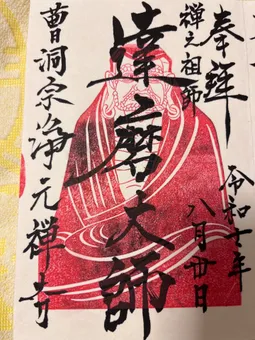 奉拝
禅之祖師
達磨大師
令和七年
八月廿日
曹洞宗浄元禅寺